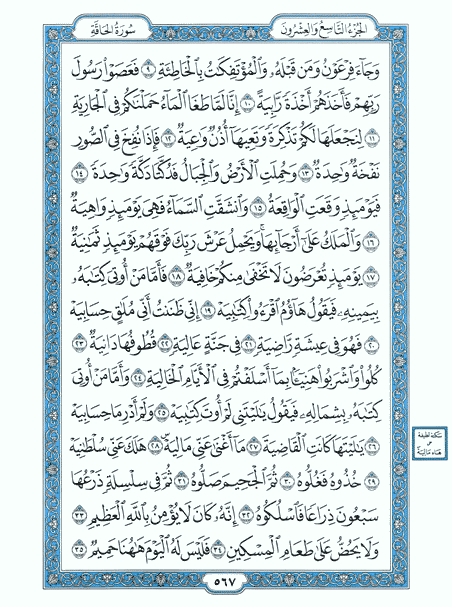 الجُزْءُ التَّاسِعُ وَالعِشْرُونَ
سُورَةُ الحَاقَّةِ
وَجَآءَ فِرْعَوْنُ وَمَن قَبْلَهُۥ وَٱلْمُؤْتَفِكَٰتُ بِٱلْخَاطِئَةِ ٩ فَعَصَوْا۟ رَسُولَ
رَبِّهِمْ فَأَخَذَهُمْ أَخْذَةً رَّابِيَةً ١٠ إِنَّا لَمَّا طَغَا ٱلْمَآءُ حَمَلْنَٰكُمْ فِى ٱلْجَارِيَةِ
١١ لِنَجْعَلَهَا لَكُمْ تَذْكِرَةً وَتَعِيَهَآ أُذُنٌ وَٰعِيَةٌ ١٢ فَإِذَا نُفِخَ فِى ٱلصُّورِ
نَفْخَةٌ وَٰحِدَةٌ ١٣ وَحُمِلَتِ ٱلْأَرْضُ وَٱلْجِبَالُ فَدُكَّتَا دَكَّةً وَٰحِدَةً ١٤
فَيَوْمَئِذٍ وَقَعَتِ ٱلْوَاقِعَةُ ١٥ وَٱنشَقَّتِ ٱلسَّمَآءُ فَهِىَ يَوْمَئِذٍ وَاهِيَةٌ
١٦ وَٱلْمَلَكُ عَلَىٰٓ أَرْجَآئِهَا وَيَحْمِلُ عَرْشَ رَبِّكَ فَوْقَهُمْ يَوْمَئِذٍ ثَمَٰنِيَةٌ
١٧ يَوْمَئِذٍ تُعْرَضُونَ لَا تَخْفَىٰ مِنكُمْ خَافِيَةٌ ١٨ فَأَمَّا مَنْ أُوتِىَ كِتَٰبَهُۥ
بِيَمِينِهِۦ فَيَقُولُ هَآؤُمُ ٱقْرَءُوا۟ كِتَٰبِيَهْ ١٩ إِنِّى ظَنَنتُ أَنِّى مُلَٰقٍ حِسَابِيَهْ
٢٠ فَهُوَ فِى عِيشَةٍ رَّاضِيَةٍ ٢١ فِى جَنَّةٍ عَالِيَةٍ ٢٢ قُطُوفُهَا دَانِيَةٌ ٢٣
كُلُوا۟ وَٱشْرَبُوا۟ هَنِيٓـًٔۢا بِمَآ أَسْلَفْتُمْ فِى ٱلْأَيَّامِ ٱلْخَالِيَةِ ٢٤ وَأَمَّا مَنْ أُوتِىَ
كِتَٰبَهُۥ بِشِمَالِهِۦ فَيَقُولُ يَٰلَيْتَنِى لَمْ أُوتَ كِتَٰبِيَهْ ٢٥ وَلَمْ أَدْرِ مَا حِسَابِيَهْ
٢٦ يَٰلَيْتَهَا كَانَتِ ٱلْقَاضِيَةَ ٢٧ مَآ أَغْنَىٰ عَنِّى مَالِيَهْ ٢٨ هَلَكَ عَنِّى سُلْطَٰنِيَهْ
٢٩ خُذُوهُ فَغُلُّوهُ ٣٠ ثُمَّ ٱلْجَحِيمَ صَلُّوهُ ٣١ ثُمَّ فِى سِلْسِلَةٍ ذَرْعُهَا
سَبْعُونَ ذِرَاعًا فَٱسْلُكُوهُ ٣٢ إِنَّهُۥ كَانَ لَا يُؤْمِنُ بِٱللَّهِ ٱلْعَظِيمِ ٣٣
وَلَا يَحُضُّ عَلَىٰ طَعَامِ ٱلْمِسْكِينِ ٣٤ فَلَيْسَ لَهُ ٱلْيَوْمَ هَٰهُنَا حَمِيمٌ ٣٥
سكتة لطيفة
على
هاء مَالِيَهْ
٥٦٧